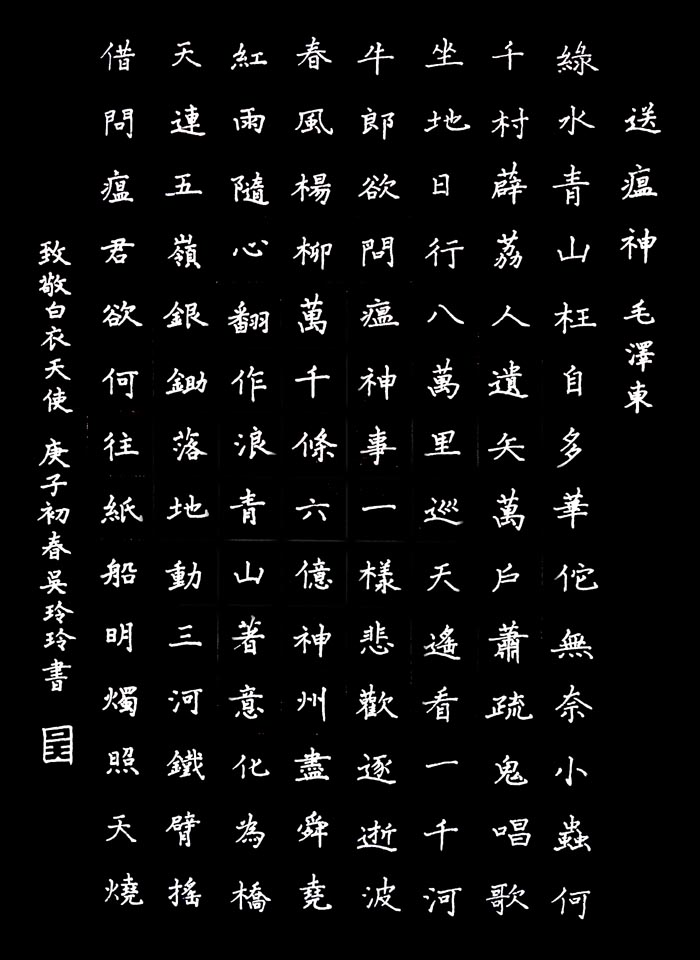 送瘟神 毛澤東
綠水青山枉自多華佗無奈小蟲何
千村薜荔人遺矢萬戶蕭疏鬼唱歌
坐地日行八萬里巡天遙看一千河
牛郎欲問瘟神事一樣悲歡逐逝波
春風楊柳萬千條六億神州盡舜堯
紅雨隨心翻作浪青山著意化為橋
天連五嶺銀鋤落地動三河鐵臂搖
借問瘟君欲何往紙船明燭照天燒
致敬白衣天使 庚子初春吳玲玲書